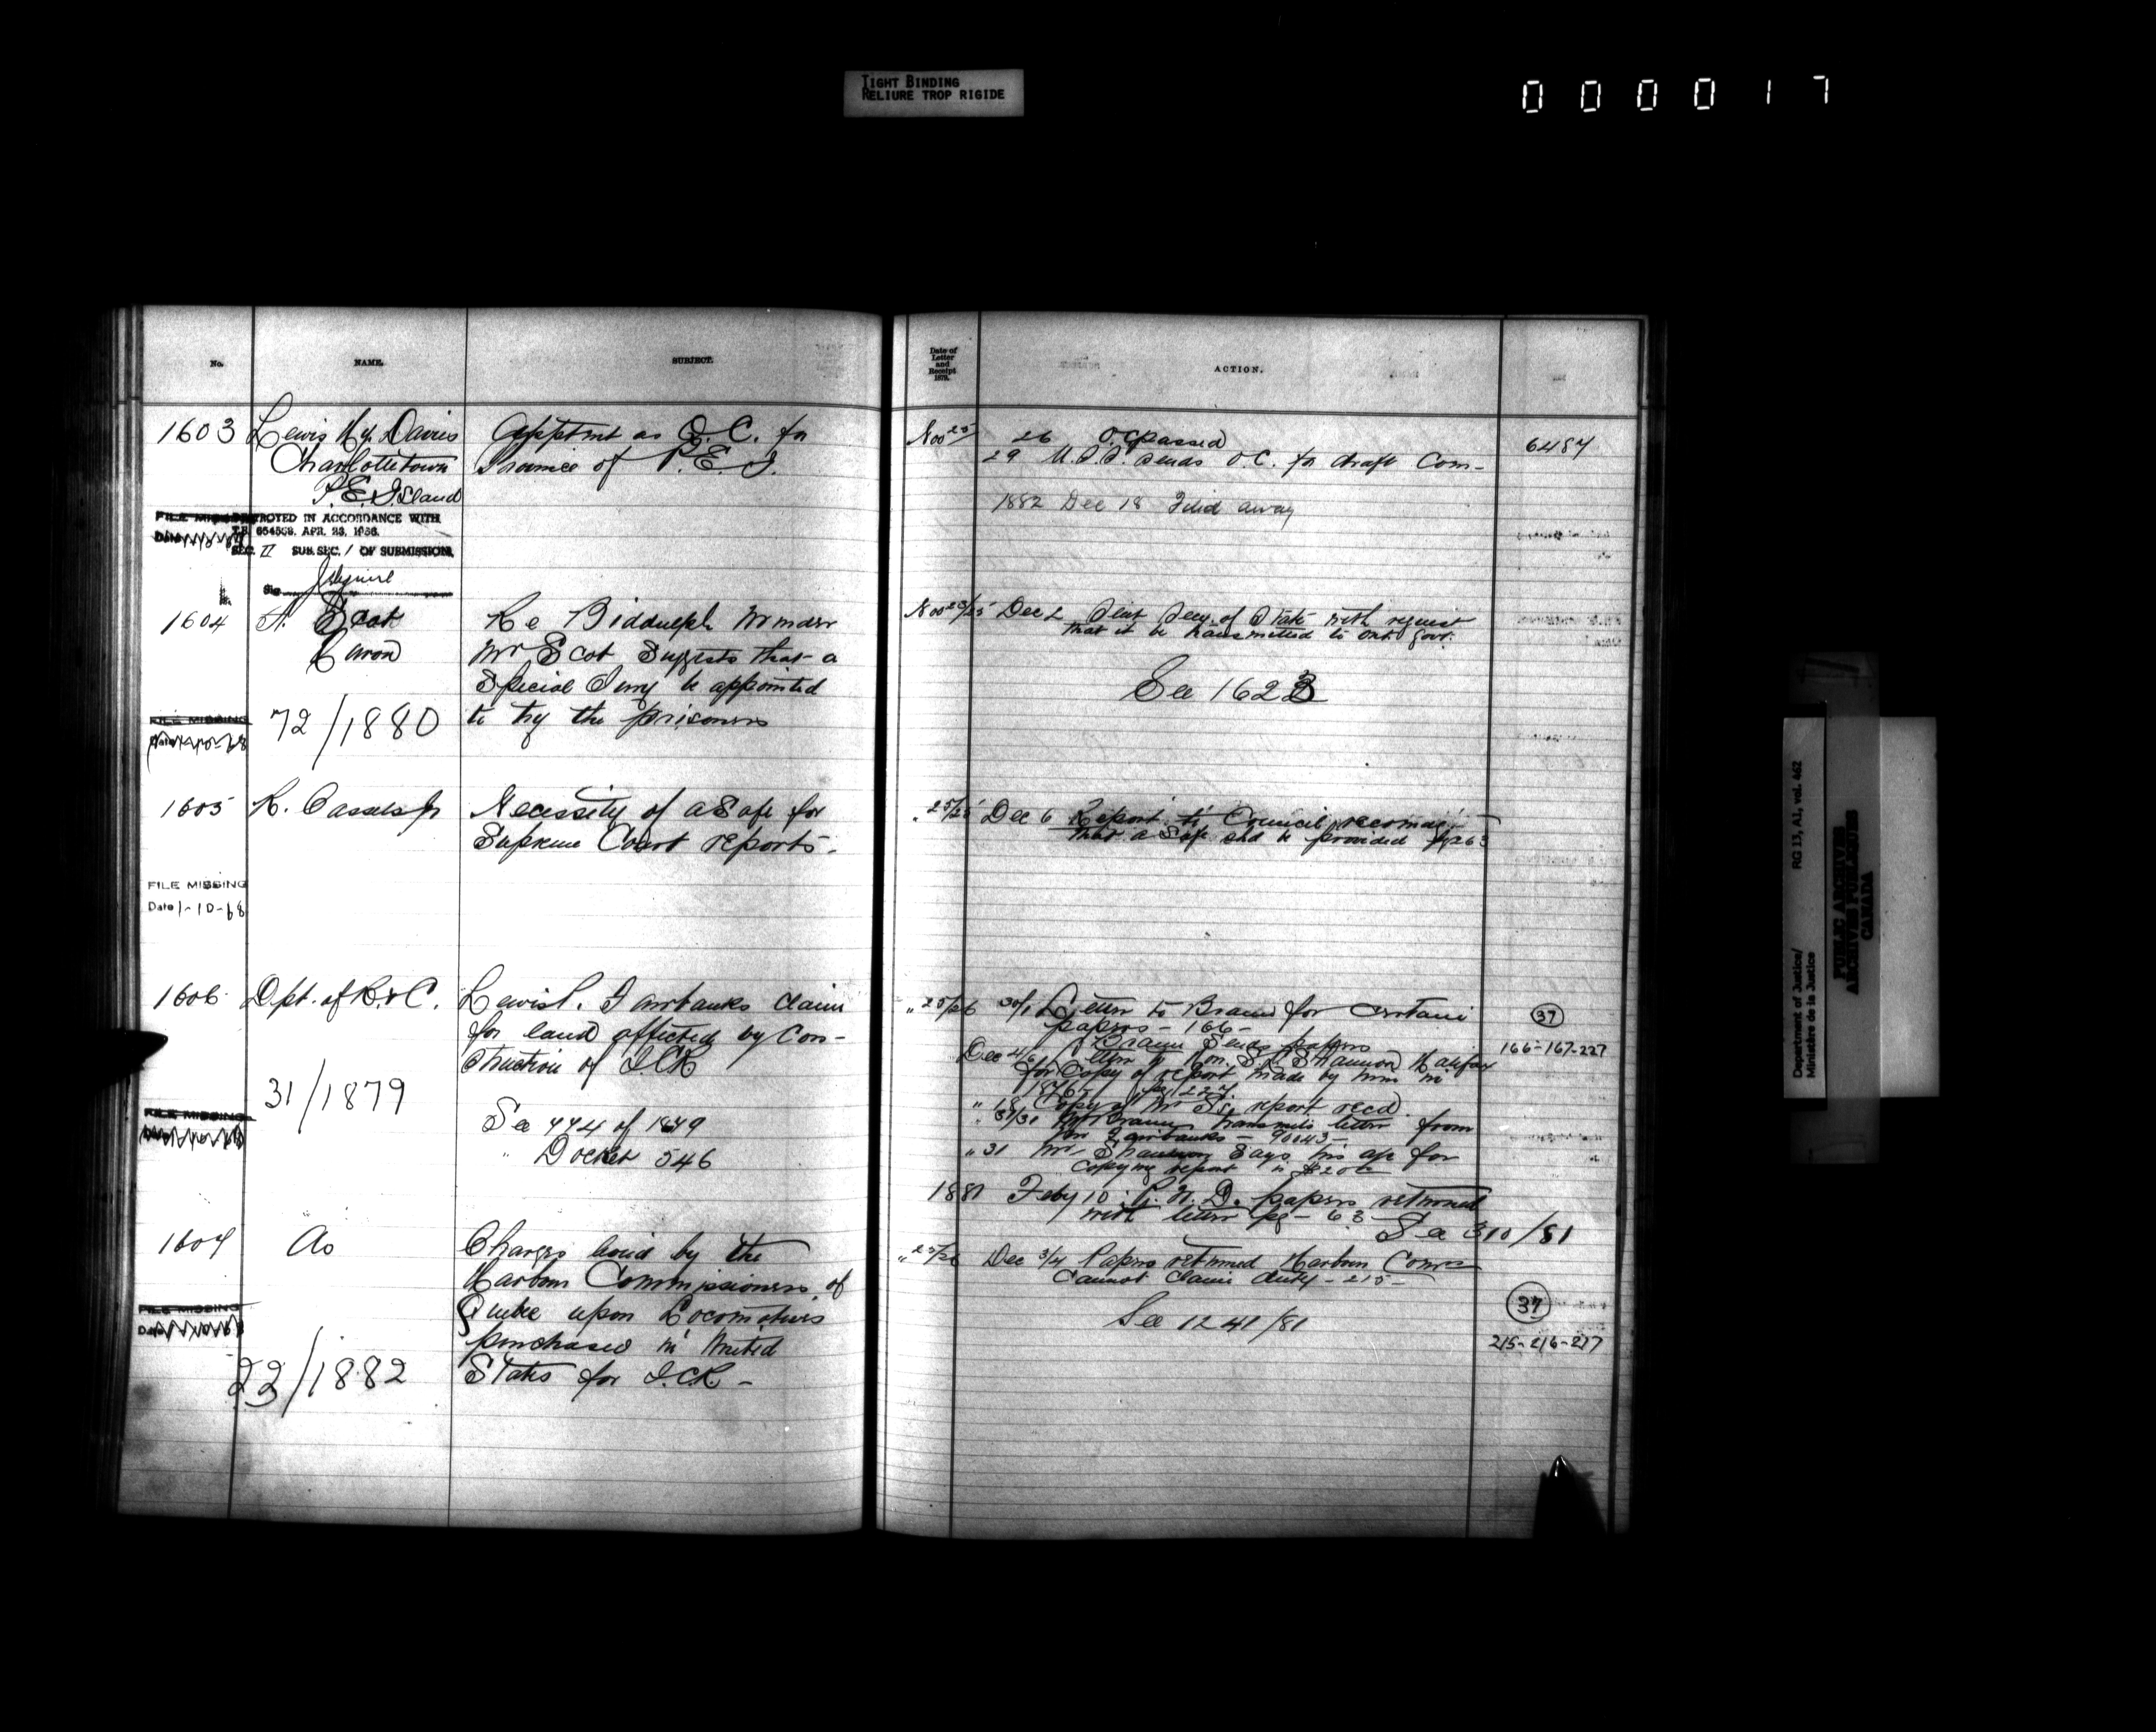 TIGHT BINDING
RELIURE TROP RIGIDE
000017
No.
NAME.
SUBJECT.
1603
Lewis Hy. Davies
Charlottetown
P.E. Island
Apptmt as Q.C. for
Province of P.E.I.
FILE MISSING
DESTROYED IN ACCORDANCE WITH
T.B. 654558. APR. 23. 1956.
SEC. II SUB. SEC. 1 OF SUBMISSION.
Sig.
1604
A. Scot
Re Biddulph Murder
Mr Scot Suggests that a
Special Jury be appointed
to try the prisoners
72/1880
FILE MISSING
Date 1-10-68
1605
R. Cassels Jr
Necessity of a Safe for
Supreme Court reports -
FILE MISSING
Date 1-10-68
1606
Dpt. of R. & C.
Lewis P. Fairbanks claim
for land affected by Con-
struction of I.C.R
31/1879
See 774 of 1879
" Docket 546
FILE MISSING
1607
Do
Charges levied by the
Harbour Commissioners of
Quebec upon Locomotives
purchased in United
States for I.C.R. -
FILE MISSING
Date
22/1882
Date of
Letter
and
Receipt
1879.
ACTION.
Nov 25
26 O.C. passed
29 U.S.S. sends O.C. for draft Com-
6487
1882 Dec 18 Filed away
Nov 23/25 Dec 2 Sent Secy. of State with request
that it be transmitted to Ont. Govt.
See 1623
" 25/25 Dec 6 Report to Council recomdg
that a Safe shd be provided pg 263
" 25/26 30/1 Letter to Braun for certain
papers - 166 -
Braun Sends papers
Dec 4/6 Letter to Hon. S.L. Shannon Halifax
for Copy of report made by him in
1876 - pg 227
" 18 Copy of Mr S's report recd.
" 31/31 Mr Braun transmits letter from
Mr Fairbanks - 90043 -
" 31 Mr Shannon Says his a/c for
copying report is $20
1881 Feby 10 papers returned
with letter pg - 63
See 310/81
37
166-167-227
" 25/26 Dec 3/4 Papers returned Harbour Comrs
Cannot claim duty - 215 -
See 1241/81
37
215-216-217
Department of Justice/
Ministère de la Justice
RG 13, A1, vol. 462
PUBLIC ARCHIVES
ARCHIVES PUBLIQUES
CANADA